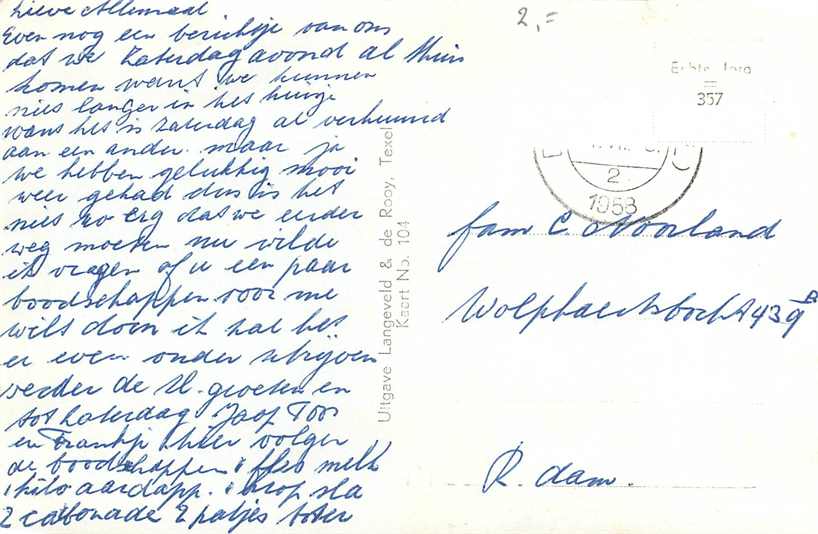 Lieve Allemaal
Even nog een berichtje van ons
dat we Zaterdagavond al thuis
komen want we kunnen
niet langer in het huisje
want het is Zaterdag al verhuurd
aan een ander. maar ja
we hebben gelukkig mooi
weer gehad dus is het
niet zo erg dat we eerder
weg moeten nu wilde
ik vragen of u een paar
boodschappen voor me
wilt doen ik zal het
er even onder schrijven
verder de H. groeten en
tot Zaterdag Jaap Toos
en Frankje hier volgen
de boodschappen 1 fles melk
1 kilo aardapp. 1 krop sla
2 carbonade 2 pakjes boter
Uitgave Langeveld & de Rooy, Texel
Kaart No. 104
2,=
Echte foto
357
2
1958
fam C. Noorland
Wolphaertsbocht 439 B
R. dam.